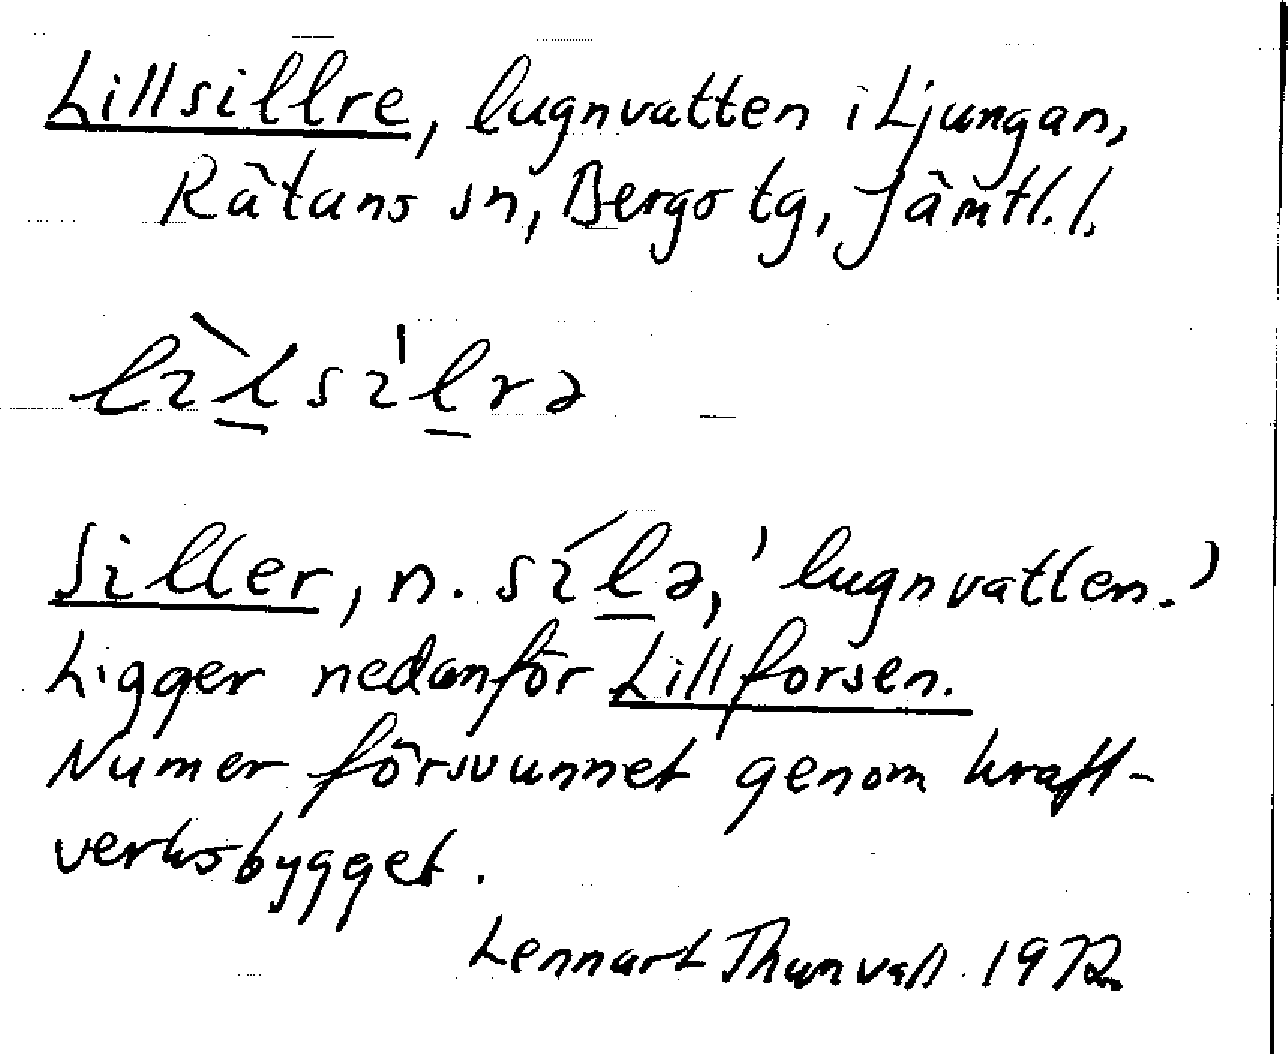 Lillsillre, lugnvatten i Ljungan,
Rätans sn, Bergs tg, Jämtl. l.
lìl̠sı̍l̠rə
Siller, n. síl̠ə, 'lugnvatten.'
Ligger nedanför Lillforsen.
Numer försvunnet genom kraft-
verksbygget.
Lennart Thunvall. 1972